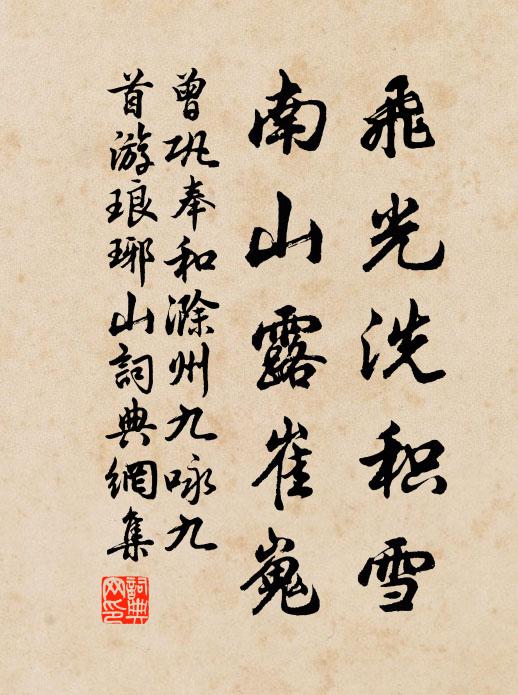 飛光洗积雪
南山露崔嵬
曾巩奉和滁州九咏九
首游琅琊山詞典網集
詞典
网印